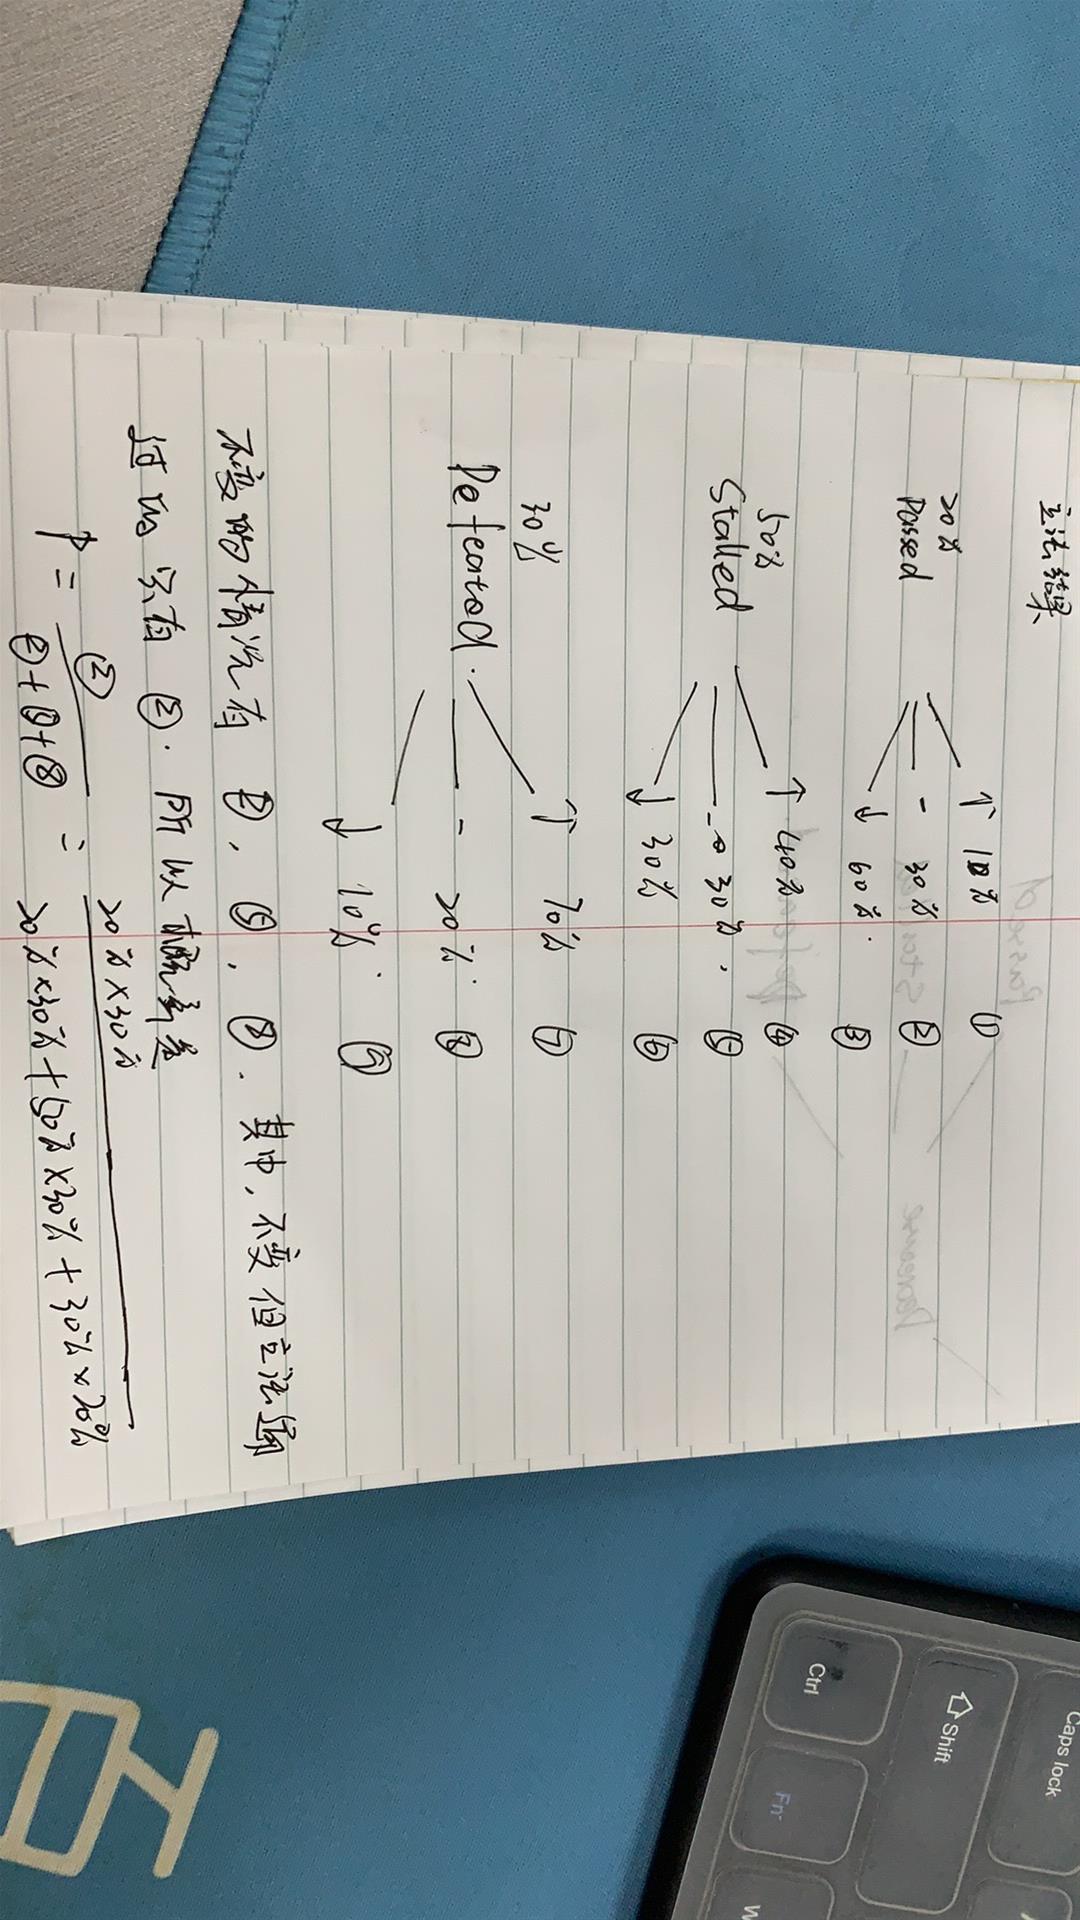 立法结果
↑ 10% ①
20%
Passed - 30% ②
↓ 60%. ③
↑ 40% ④
50%
Stalled - 30%. ⑤
↓ 30% ⑥
↑ 70% ⑦
30%
Defeated. - 20%. ⑧
↓ 10%. ⑨
不变的情况有 ②, ⑤, ⑧. 其中, 不变但立法通
过的 只有 ②. 所以概率是
P = ② / ②+⑤+⑧ = 20%×30% / 20%×30%+50%×30%+30%×20%
Caps lock
Shift
Ctrl
Fn
W